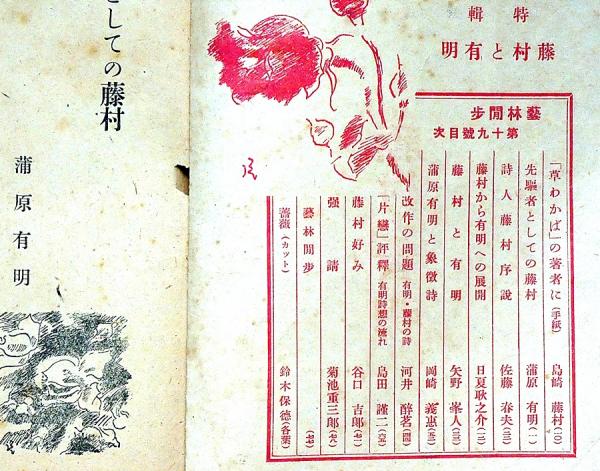 特輯
藤村と有明
藝林閒歩
第十九號目次
「草わかば」の著者に(手紙) 島崎藤村(二〇)
先驅者としての藤村 蒲原有明(一)
詩人藤村序説 佐藤春夫(三)
藤村から有明への展開 日夏耿之介(二)
藤村と有明 矢野峯人(三)
蒲原有明と象徴詩 岡崎義惠
改作の問題 有明・藤村の詩 河井醉茗
「片戀」評釋 有明詩想の流れ 島田謹二
藤村好み 谷口吉郎
强請 菊池重三郎
藝林閒歩
薔薇(カット) 鈴木保德(各葉)
としての藤村
蒲原有明